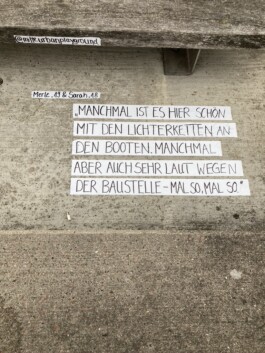 Merle, 19 & Sarah, 18
„MANCHMAL IST ES HIER SCHÖN
MIT DEN LICHTERKETTEN AN
DEN BOOTEN. MANCHMAL
ABER AUCH SEHR LAUT WEGEN
DER BAUSTELLE – MAL SO, MAL SO.“